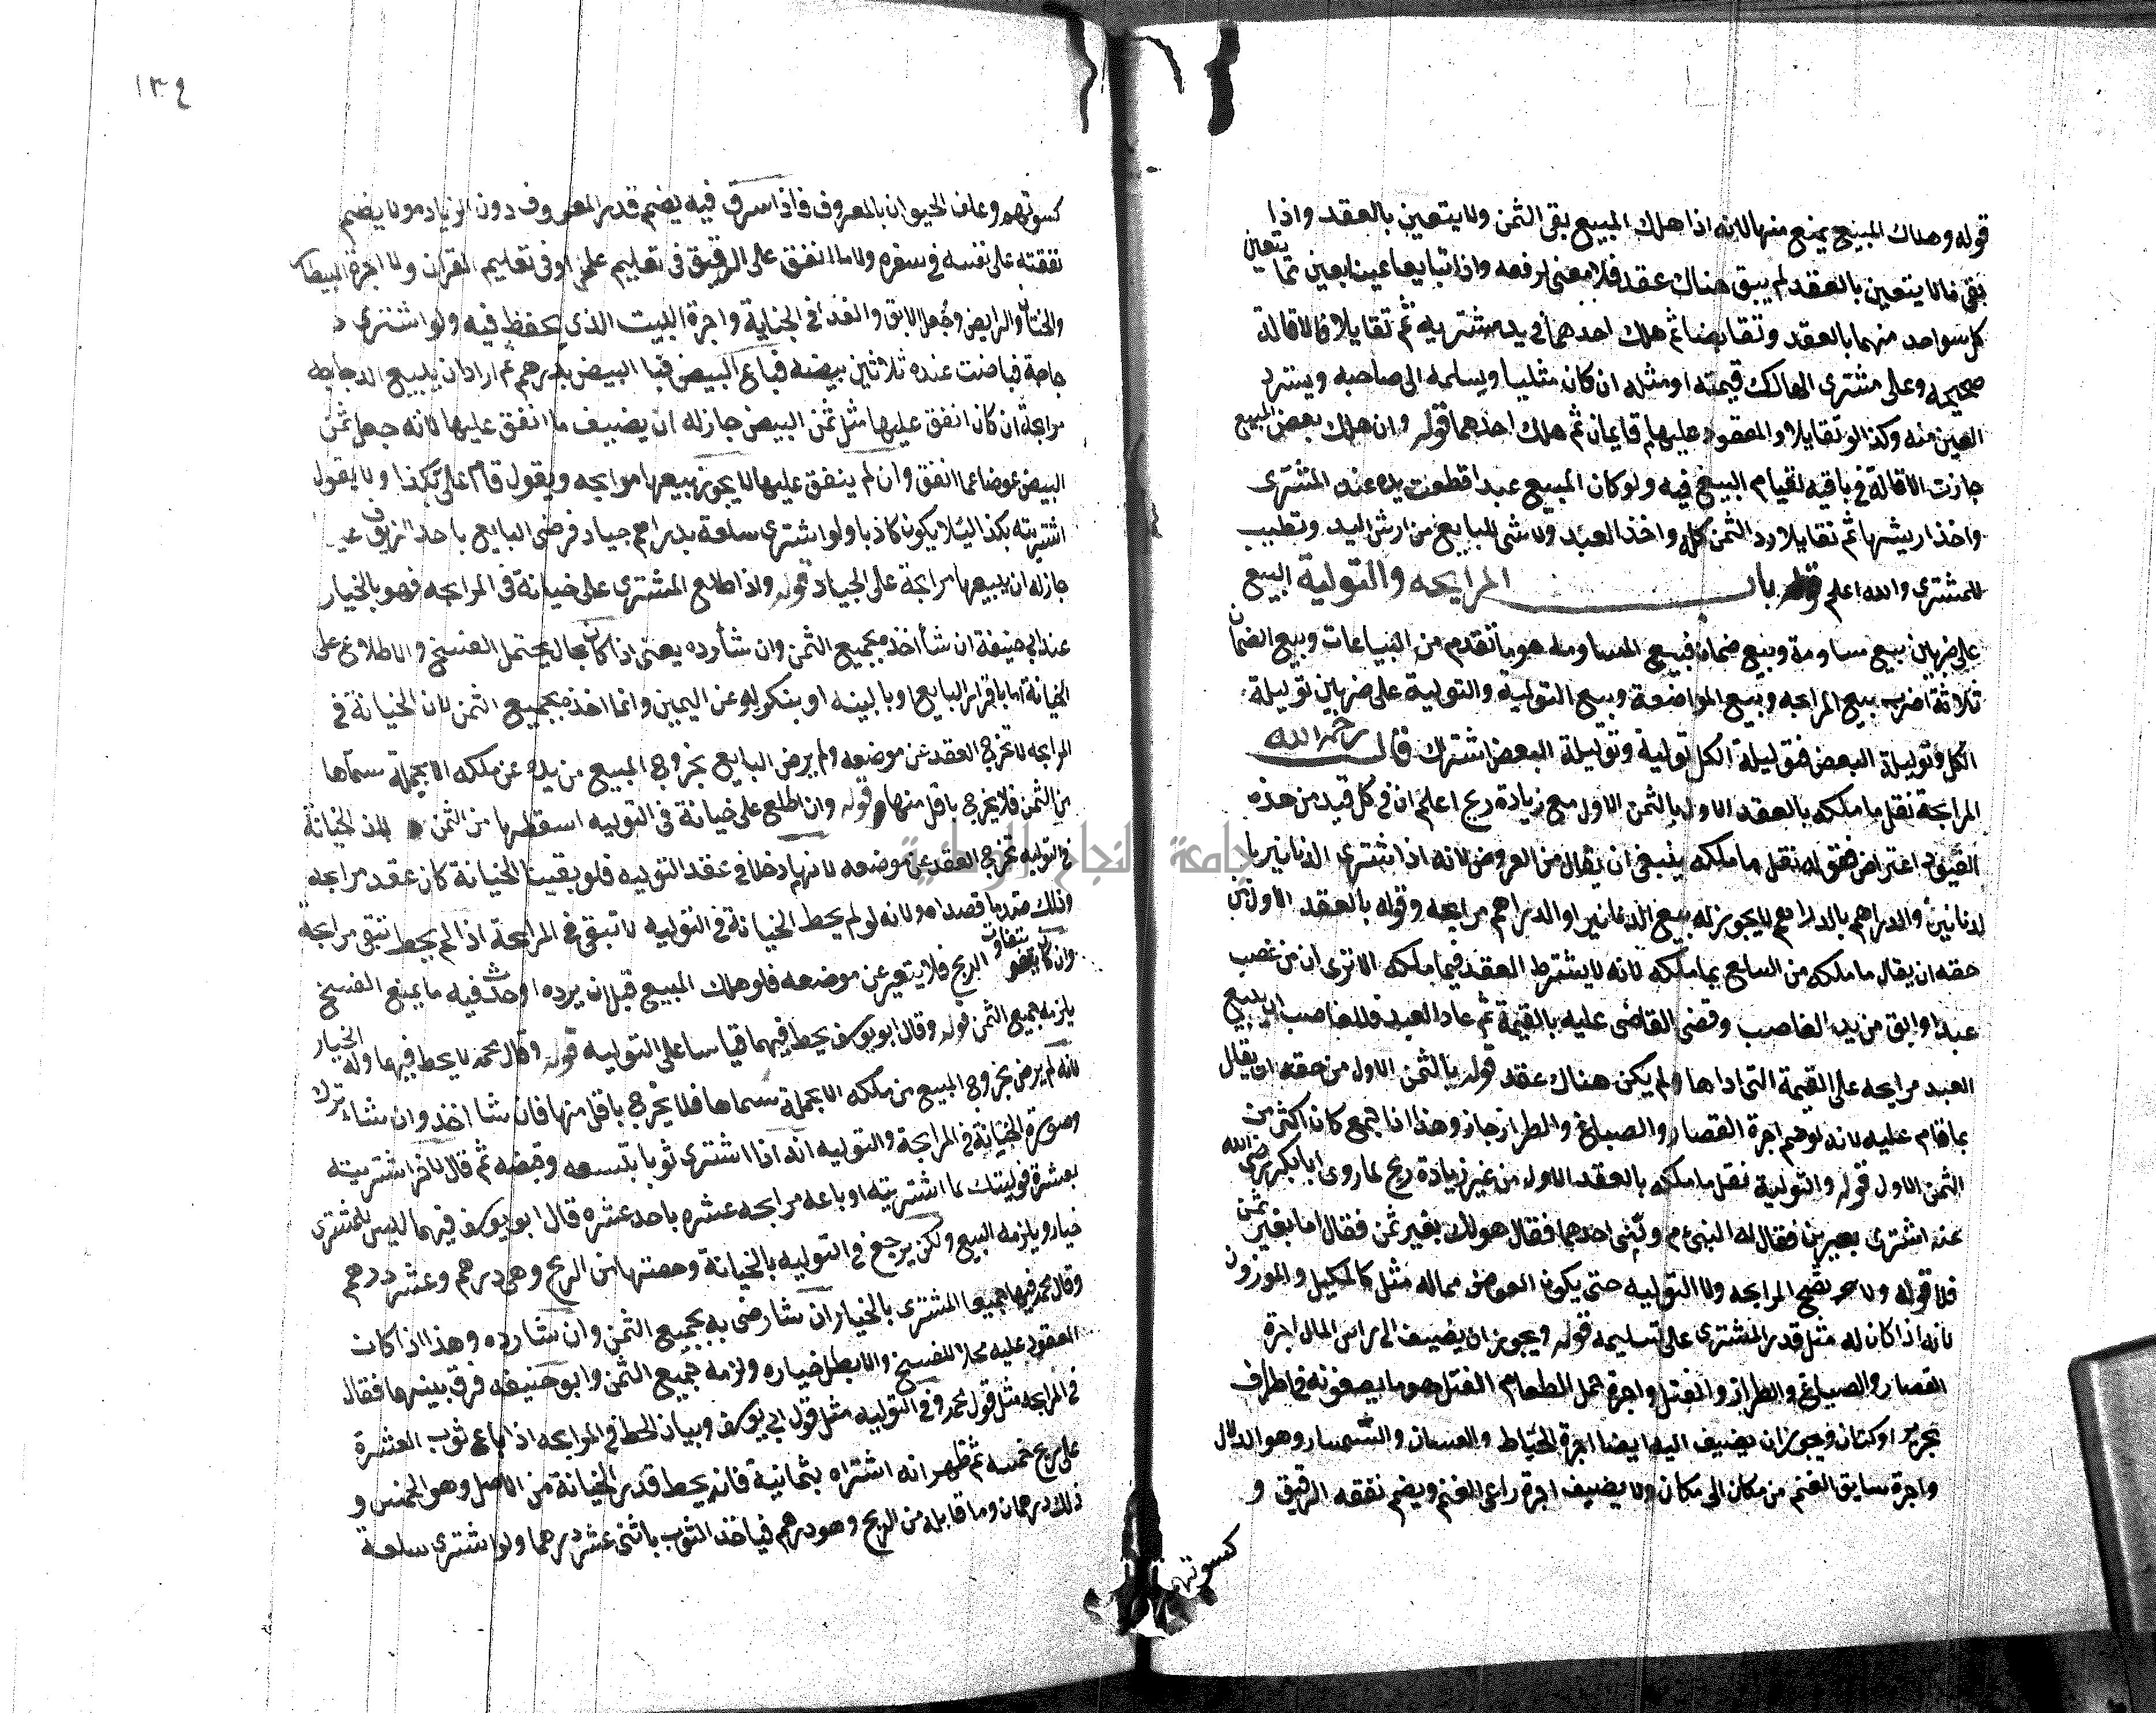 قوله وهلاك المبيع يمنع منها لانه اذا هلك المبيع بقى الثمن ولا يتعين بالعقد واذا
بقى ما لا يتعين بالعقد لم يبق هناك عقد فلا معنى لرفعه واذا تبايعا عينا بعين مما يتعين
كل واحد منهما بالعقد وتقابضا ثم هلك احدهما في يد مشتريه ثم تقايلا فالاقالة
صحيحه وعلى مشترى الهالك قيمته او مثله ان كان مثليا ويسلمه الى صاحبه ويسترد
العين منه وكذا لو تقايلا والمعقود عليهما قايمان ثم هلك احدهما قوله وان هلك بعض المبيع
جازت الاقالة في باقيه لقيام البيع فيه ولو كان المبيع عبدا قطعت يده عند المشترى
واخذ ارشها ثم تقايلا رد الثمن كله واخذ العبد ولا شى للبايع من ارش اليد وتطيب
للمشترى والله اعلم باب المرابحه والتولية البيع
على ضربين بيع مساومة وبيع ضمان فبيع المساومه هو ما تقدم من البياعات وبيع الضمان
ثلاثة اضرب بيع المرابحه وبيع المواضعة وبيع التولية والتولية على ضربين تولية
الكل وتولية البعض فتولية الكل تولية وتولية البعض اشتراك قال رحمه الله
المرابحة نقل ما ملكه بالعقد الاول بالثمن الاول مع زيادة ربح اعلم ان في كل قيد من هذه
القيود اعتراض فقوله نقل ما ملكه ينبغى ان يقال من العروض لانه اذا اشترى الدنانير با
لدنانير والدراهم بالدراهم لا يجوز له بيع الدنانير او الدراهم مرابحه وقوله بالعقد الاول من
حقه ان يقال ما ملكه من السلع بما ملكه لانه لا يشترط العقد فيما ملكه الا ترى ان من غصب
عبدا وابق من يد الغاصب وقضى القاضى عليه بالقيمة ثم عاد العبد فللغاصب ان يبيع
العبد مرابحه على القيمة التى اداها ولم يكن هناك عقد قوله بالثمن الاول من حقه ان يقال
بما قام عليه لانه لو ضم اجرة القصار والصباغ والطراز جاز وهذا اذا جمع كان اكثر من
الثمن الاول قوله والتولية نقل ما ملكه بالعقد الاول من غير زيادة ربح لما روى ابا بكر رضى الله
عنه اشترى بعيرين فقال له النبى م ولنى احدهما فقال هو لك بغير ثمن فقال اما بغير ثمن
فلا قوله ولا تصح المرابحه ولا التوليه حتى يكون العوض مما له مثل كالمكيل والموزون
لانه اذا كان له مثل قدر المشترى على تسليمه قوله ويجوز ان يضيف الى راس المال اجرة
القصار والصباغ والطراز والفتل واجرة حمل الطعام الفتل هو ما يصفونه في اطراف
بحرير او كتان ويجوز ان يضيف اليه ايضا اجرة الخياط والغسال والسمسار وهو الدلال
واجرة سايق الغنم من مكان الى مكان ولا يضيف اجرة راعى الغنم ويضم نفقه الرقيق و
كسوتهم
١٣٤
كسوتهم وعلف الحيوان بالمعروف فاذا اسرف فيه يضم قدر المعروف دون الزياده ولا يضم
نفقته على نفسه في سفره ولا ما انفق على الرقيق في تعليم علم او في تعليم القران ولا اجرة البيطار
والختان والرايض وجعل الابق والفدا في الجناية واجرة البيت الذي يحفظ فيه ولو اشترى د
جاجة فباضت عنده ثلاثين بيضه فباع البيض بدرهم ثم اراد ان يبيع الدجاجه
مرابحة ان كان انفق عليها مثل ثمن البيض جاز له ان يضيف ما انفق عليها لانه جعل ثمن
البيض عوضا عما انفق وان لم ينفق عليها لا يجوز بيعها مرابحه ويقول قام على بكذا ولا يقول
اشتريته بكذا لئلا يكون كاذبا ولو اشترى سلعة بدراهم جياد فرضى البايع باخذ الزيوف
جاز له ان يبيعها مرابحة على الجياد قوله واذا اطلع المشترى على خيانة في المرابحه فهو بالخيار
عند ابي حنيفة ان شا اخذ بجميع الثمن وان شا رده يعنى اذا كان بحال يحتمل الفسخ والاطلاع على
الخيانة اما باقرار البايع او بالبينه او بنكوله عن اليمين وانما اخذ بجميع الثمن لان الخيانة في
المرابحه لا تخرج العقد عن موضعه ولم يرض البايع بخروج المبيع من يده عن ملكه الا بجملة سماها
من الثمن فلا يخرج باقل منها قوله وان اطلع على خيانة في التوليه اسقطها من الثمن لان الخيانة
في التوليه تخرج العقد عن موضعه لانهما دخلا في عقد التوليه فلو بقيت الخيانة كان عقد مرابحه
وذلك ضد ما قصداه ولانه لو لم يحط الخيانة في التوليه لا تبقى وفي المرابحة اذا لم يحط تبقى مرابحة
وان كان يتفاوت الربح فلا يتغير عن موضعه فلو هلك المبيع قبل ان يرده او حدث فيه ما يمنع الفسخ
يلزمه جميع الثمن قوله وقال ابو يوسف يحط فيهما قياسا على التوليه قوله وقال محمد لا يحط فيهما وله الخيار
لانه لم يرض بخروج المبيع من ملكه الا بجملة سماها فلا يخرج باقل منها فان شا اخذ وان شاء ترك
وصورة الخيانة في المرابحة والتوليه انه اذا اشترى ثوبا بتسعه وقبضه ثم قال لاخر اشتريته
بعشرة فوليتك بما اشتريته او باعه مرابحه عشره باحد عشره قال ابو يوسف فيهما ليس للمشترى
خيار ويلزمه البيع ولكن يرجع في التوليه بالخيانة وحصتها من الربح وهى درهم وعشر درهم
وقال محمد فيهما جميعا المشترى بالخيار ان شا رضى به بجميع الثمن وان شا رده وهذا اذا كان
المعقود عليه محلا للفسخ والا بطل خياره ولزمه جميع الثمن وابو حنيفه فرق بينهما فقال
في المرابحه مثل قول محمد وفي التوليه مثل قول ابي يوسف وبيان الحط في المرابحه اذا باع ثوب العشرة
على ربح خمسه ثم ظهر انه اشتراه بثمانية فانه يحط قدر الخيانة من الاصل وهو الخمس و
ذلك درهمان وما قابله من الربح وهو درهم فياخذ الثوب باثنى عشر درهما ولو اشترى سلعة
جامعة النجاح الوطنية